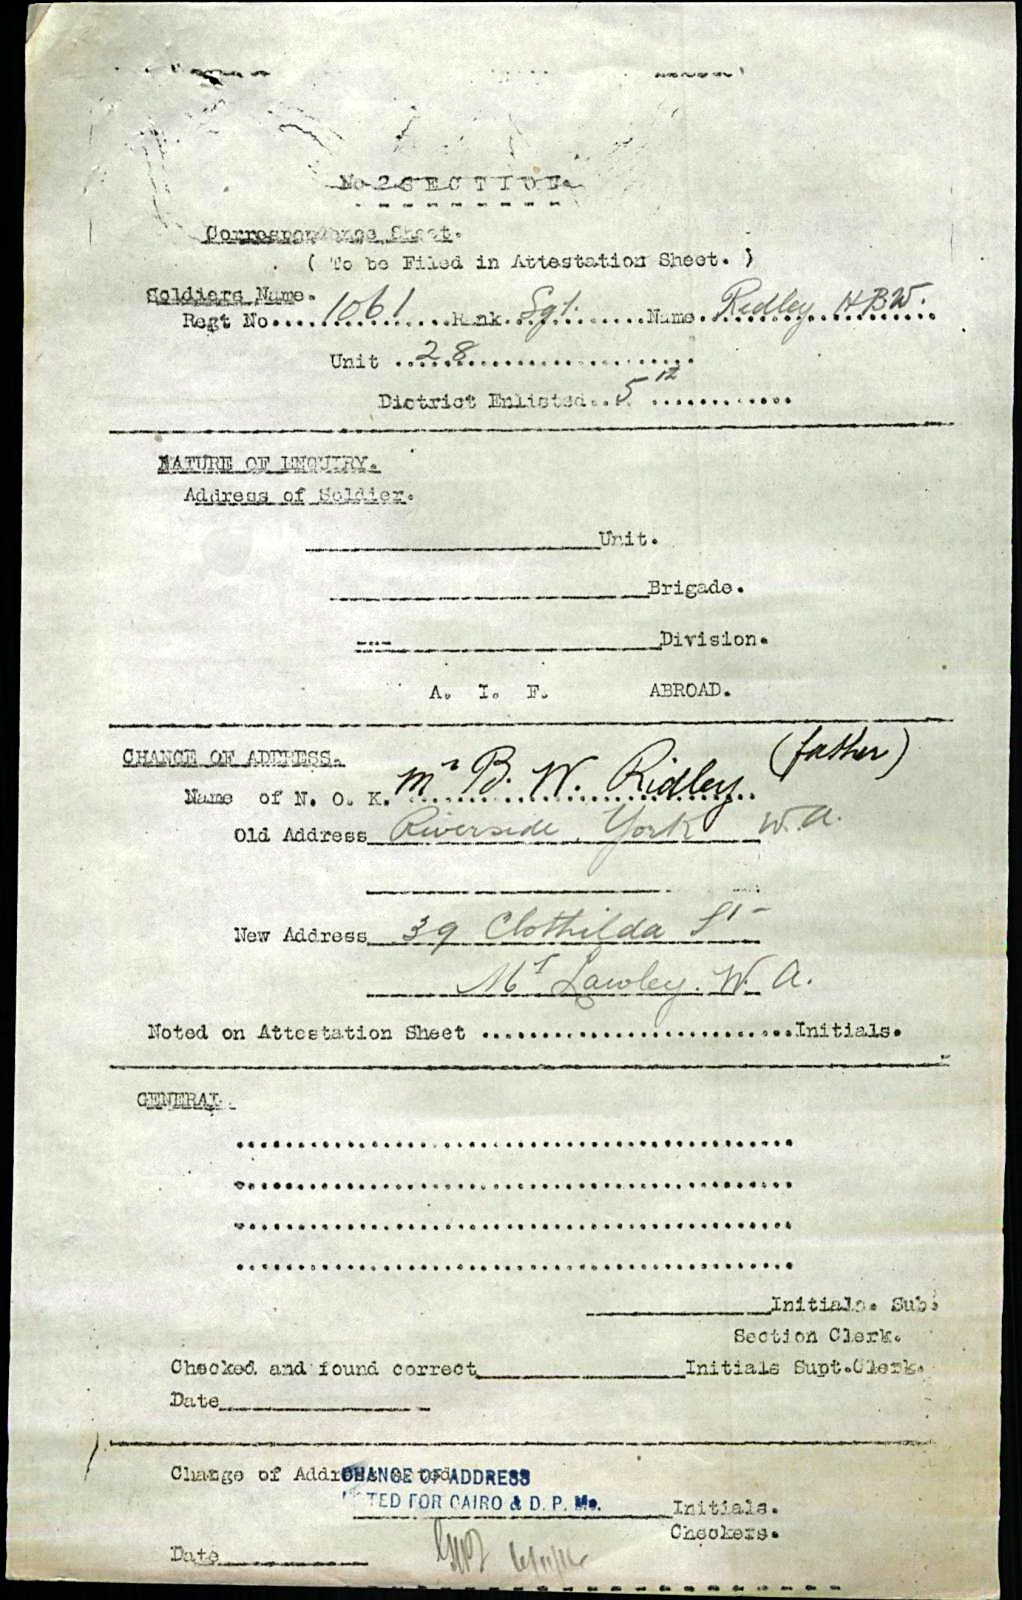 No 2 SECTION.
Correspondence Sheet.
( To be Filed in Attestation Sheet. )
Soldiers Name.
Regt No.....1061.....Rank. Sgt. .....Name. Ridley H B W.
Unit ..28.....
District Enlisted...5th.....
NATURE OF ENQUIRY.
Address of Soldier.
____Unit.
____Brigade.
____Division.
A. I. F. ABROAD.
CHANGE OF ADDRESS. (father)
Name of N. O. K. Mr B. W. Ridley
Old Address Riverside York W.A.
New Address 39 Clothilda St
Mt Lawley. W. A.
Noted on Attestation Sheet .....Initials.
GENERAL.
____Initials. Sub.
Section Clerk.
Checked and found correct____Initials Supt.Clerk.
Date____
Change of Address noted
CHANGE OF ADDRESS
NOTED FOR CAIRO & D. P. Mo.
____Initials.
Checkers.
Date____